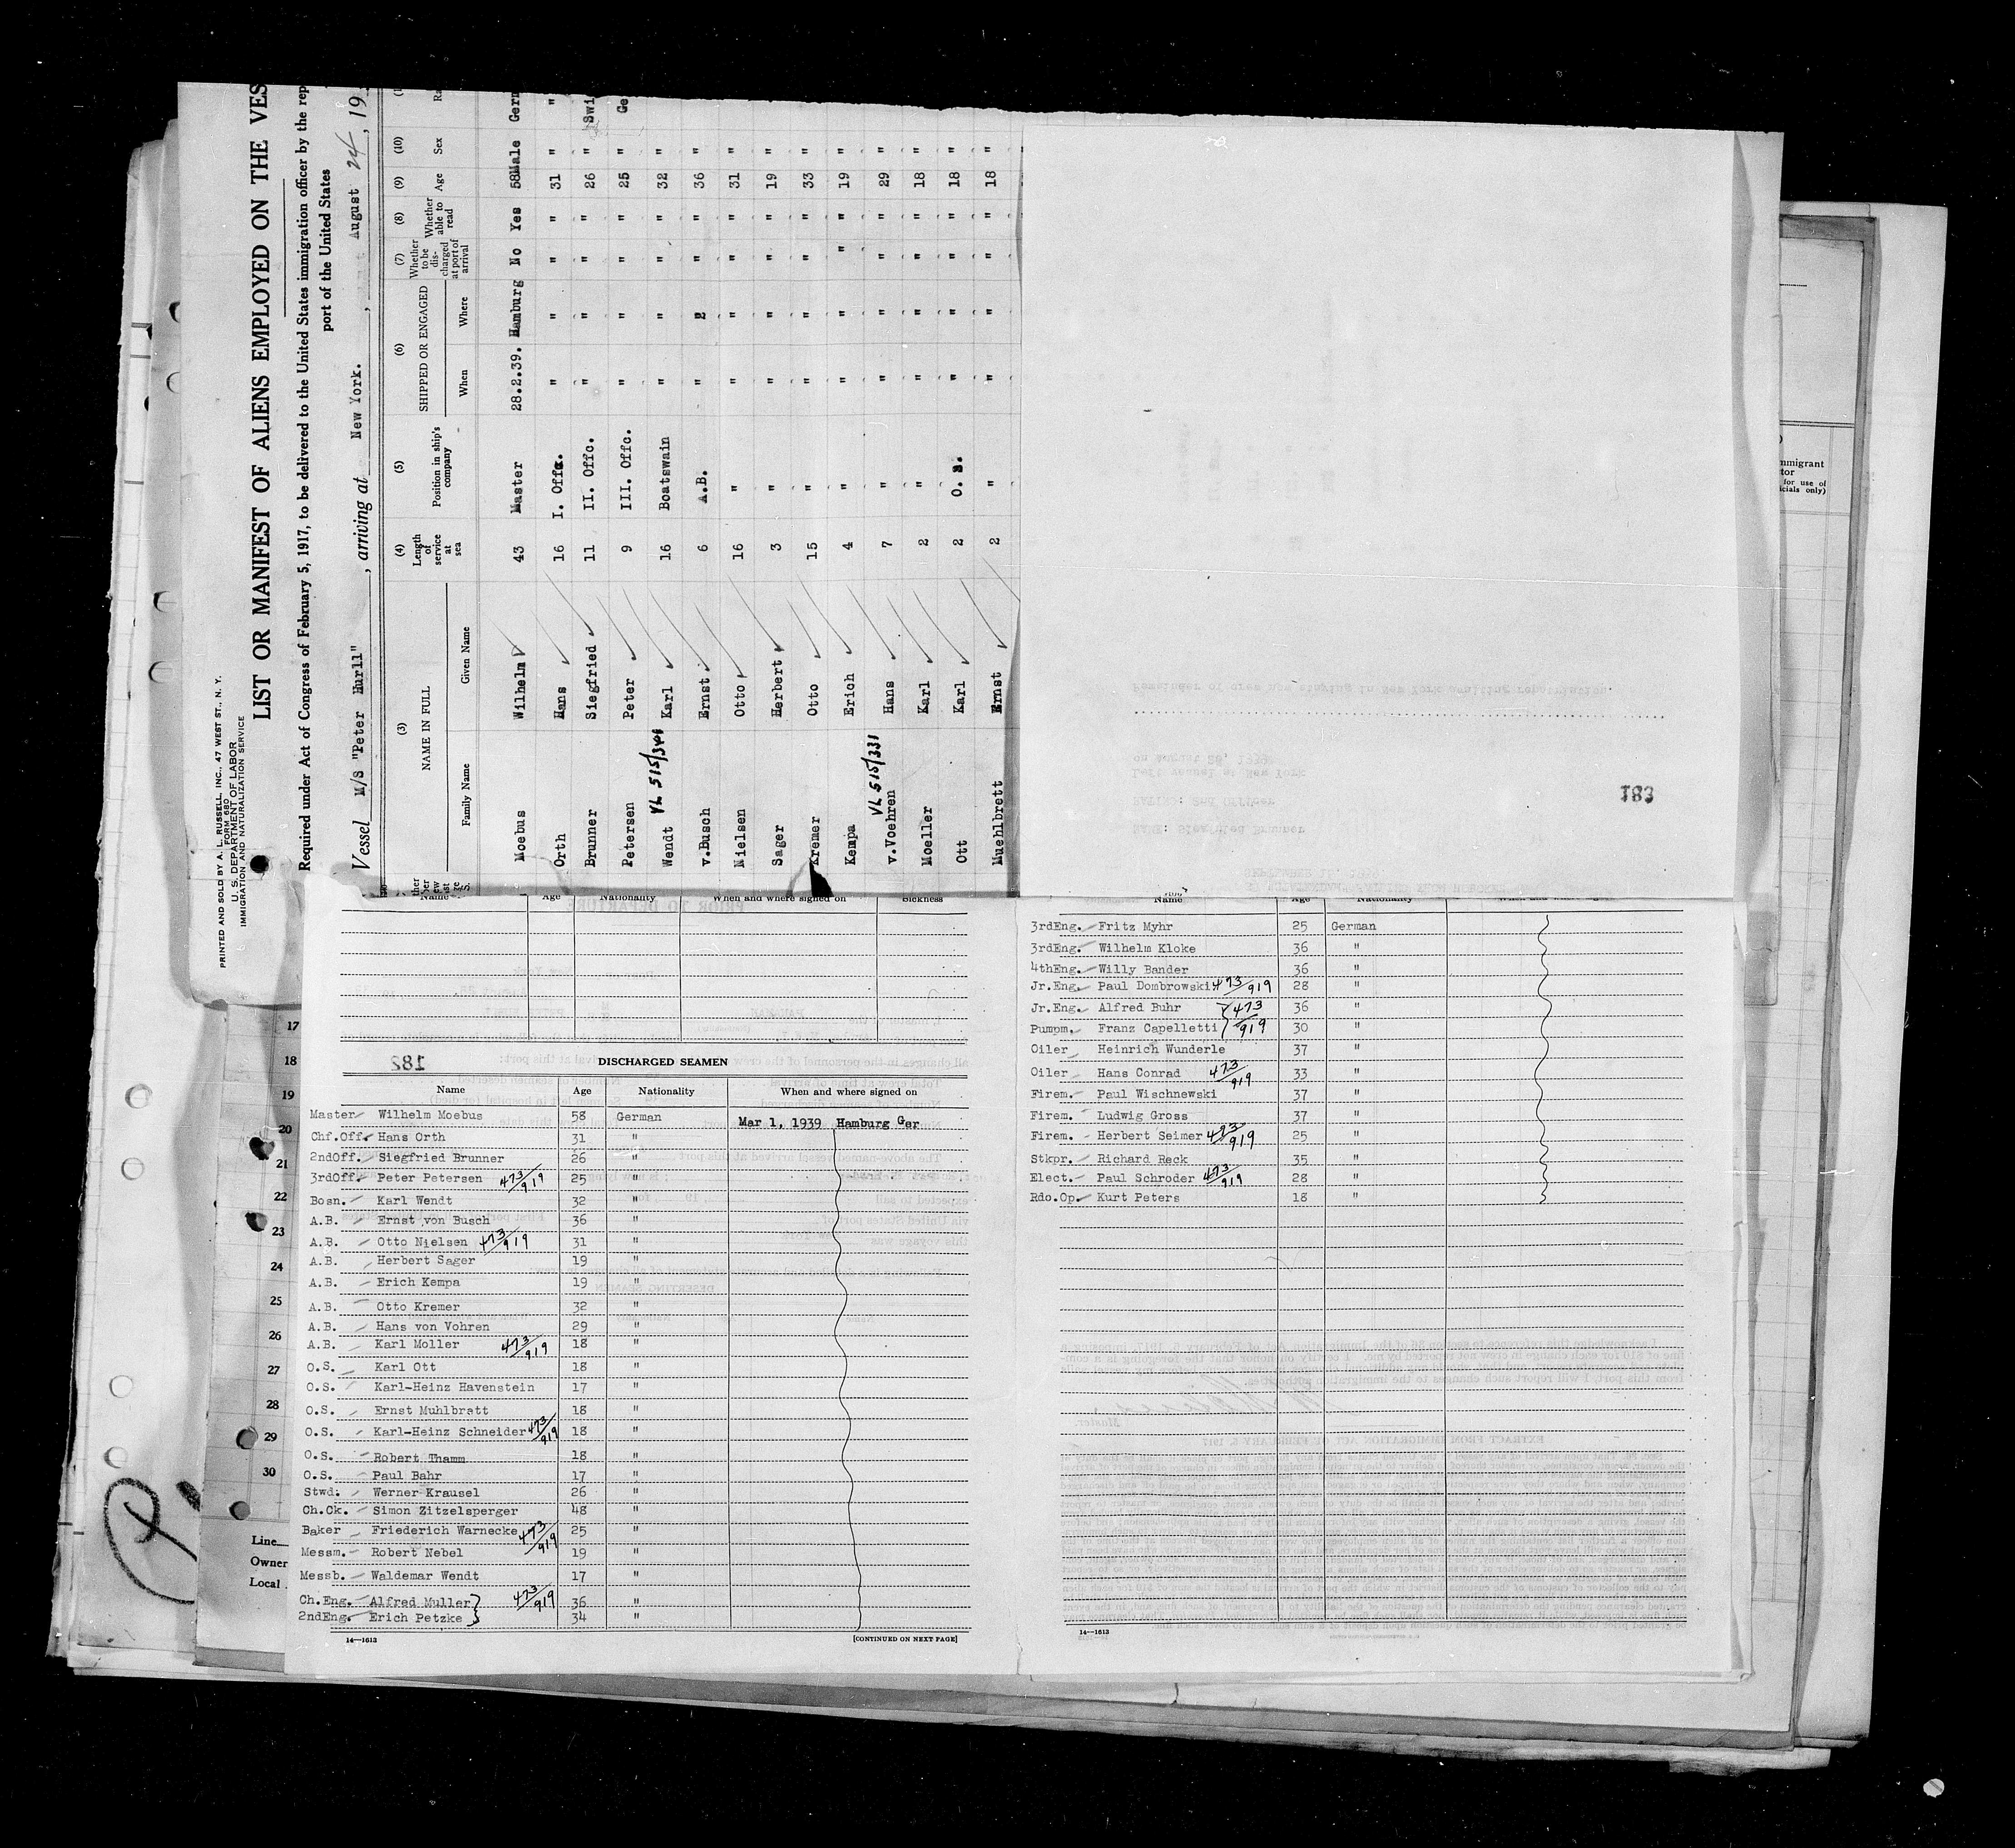 PRINTED AND SOLD BY A. L. RUSSELL, INC., 47 WEST ST., N. Y.
FORM 680
U. S. DEPARTMENT OF LABOR
IMMIGRATION AND NATURALIZATION SERVICE
LIST OR MANIFEST OF ALIENS EMPLOYED ON THE VES
Required under Act of Congress of February 5, 1917, to be delivered to the United States immigration officer by the rep
port of the United States
Vessel M/S "Peter Hurll", arriving at New York., August 24, 19
(3) (4) (5) (6) (7) (8) (9) (10)
NAME IN FULL Length of service at sea Position in ship's company SHIPPED OR ENGAGED Whether to be discharged at port of arrival Whether able to read Age Sex Ra
Family Name Given Name When Where
Moebus Wilhelm 43 Master 28.2.39. Hamburg No Yes 58 Male Germ
Orth Hans 16 I. Offc. " " " " 31 " "
Brunner Siegfried 11 II. Offc. " " " " 26 " Swi
Petersen Peter 9 III. Offc. " " " " 25 " Ge
Wendt VL 515/346 Karl 16 Boatswain " " " " 32 "
v.Busch Ernst 6 A.B. " " " " 36 "
Nielsen Otto 16 " " " " " 31 "
Sager Herbert 3 " " " " " 19 "
Kremer Otto 15 " " " " " 33 "
Kempa Erich 4 " " " " " 19 "
v.Voehren VL 515/331 Hans 7 " " " " " 29 "
Moeller Karl 2 " " " " " 18 "
Ott Karl 2 O. S. " " " " 18 "
Muehlbrett Ernst 2 " " " " " 18 "
Remainder of crew now staying in New York awaiting repatriation.
on August 28, 1939
Left vessel at New York
RATING: 2nd Officer
NAME: Siegfried Brunner
183
mmigrant
tor
for use of
icials only)
Name Age Nationality When and where signed on Sickness
182
DISCHARGED SEAMEN
Name Age Nationality When and where signed on
Master Wilhelm Moebus 58 German Mar 1, 1939 Hamburg Ger
Chf.Off. Hans Orth 31 "
2ndOff. Siegfried Brunner 26 "
3rdOff. Peter Petersen 473/919 25 "
Bosn. Karl Wendt 32 "
A.B. Ernst von Busch 36 "
A.B. Otto Nielsen 473/919 31 "
A.B. Herbert Sager 19 "
A.B. Erich Kempa 19 "
A.B. Otto Kremer 32 "
A.B. Hans von Vohren 29 "
A.B. Karl Moller 473/919 18 "
O.S. Karl Ott 18 "
O.S. Karl-Heinz Havenstein 17 "
O.S. Ernst Muhlbratt 18 "
O.S. Karl-Heinz Schneider 473/919 18 "
O.S. Robert Thamm 18 "
O.S. Paul Bahr 17 "
Stwd. Werner Krausel 26 "
Ch.Ck. Simon Zitzelsperger 48 "
Baker Friederich Warnecke 473/919 25 "
Messm. Robert Nebel 19 "
Messb. Waldemar Wendt 17 "
Ch.Eng. Alfred Muller 473/919 36 "
2ndEng. Erich Petzke 34 "
14—1613 [CONTINUED ON NEXT PAGE]
Name Age Nationality
3rdEng. Fritz Myhr 25 German
3rdEng. Wilhelm Kloke 36 "
4thEng. Willy Bander 36 "
Jr.Eng. Paul Dombrowski 473/919 28 "
Jr.Eng. Alfred Buhr 473/919 36 "
Pumpm. Franz Capelletti 30 "
Oiler Heinrich Wunderle 37 "
Oiler Hans Conrad 473/919 33 "
Firem. Paul Wischnewski 37 "
Firem. Ludwig Gross 37 "
Firem. Herbert Seimer 473/919 25 "
Stkpr. Richard Reck 35 "
Elect. Paul Schroder 473/919 28 "
Rdo.Op. Kurt Peters 18 "
14—1613
17
18
19
20
21
22
23
24
25
26
27
28
29
30
Line
Owner
Local